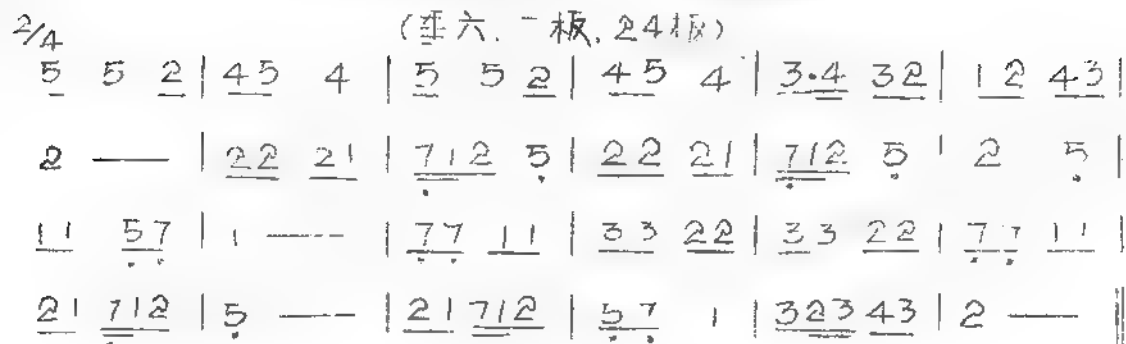 2/4
(垂六、一板、24板)
5 5 2 | 45 4 | 5 5 2 | 45 4 | 3·4 32 | 12 43 |
2 — | 22 21 | 712 5 | 22 21 | 712 5 | 2 5 |
11 57 | 1 — | 77 11 | 33 22 | 33 22 | 77 11 |
21 712 | 5 — | 21 712 | 57 1 | 323 43 | 2 — ‖